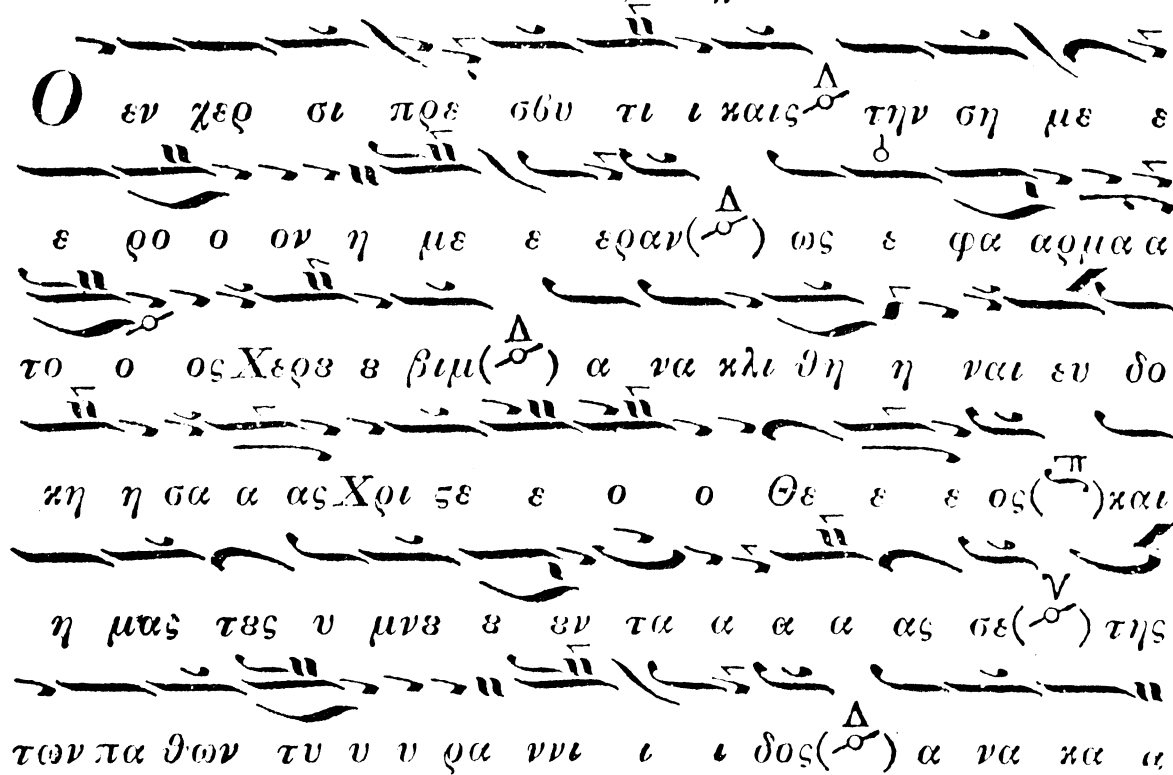 Ο εν χερ σι πρε σβυ τι ι καις Δ την ση με ε
ε ρο ο ον η με ε εραν(Δ) ως ε φα αρμα α
το ο ος Χερȣ ȣ βιμ(Δ) α να κλι θη η ναι ευ δο
κη η σα α ας Χρι ϛε ε ο ο Θε ε ε ος(π) και
η μας τȣς υ μνȣ ȣ ȣν τα α α α ας σε(ν) της
των πα θων τυ υ υ ρα ννι ι ι δος(Δ) α να κα α